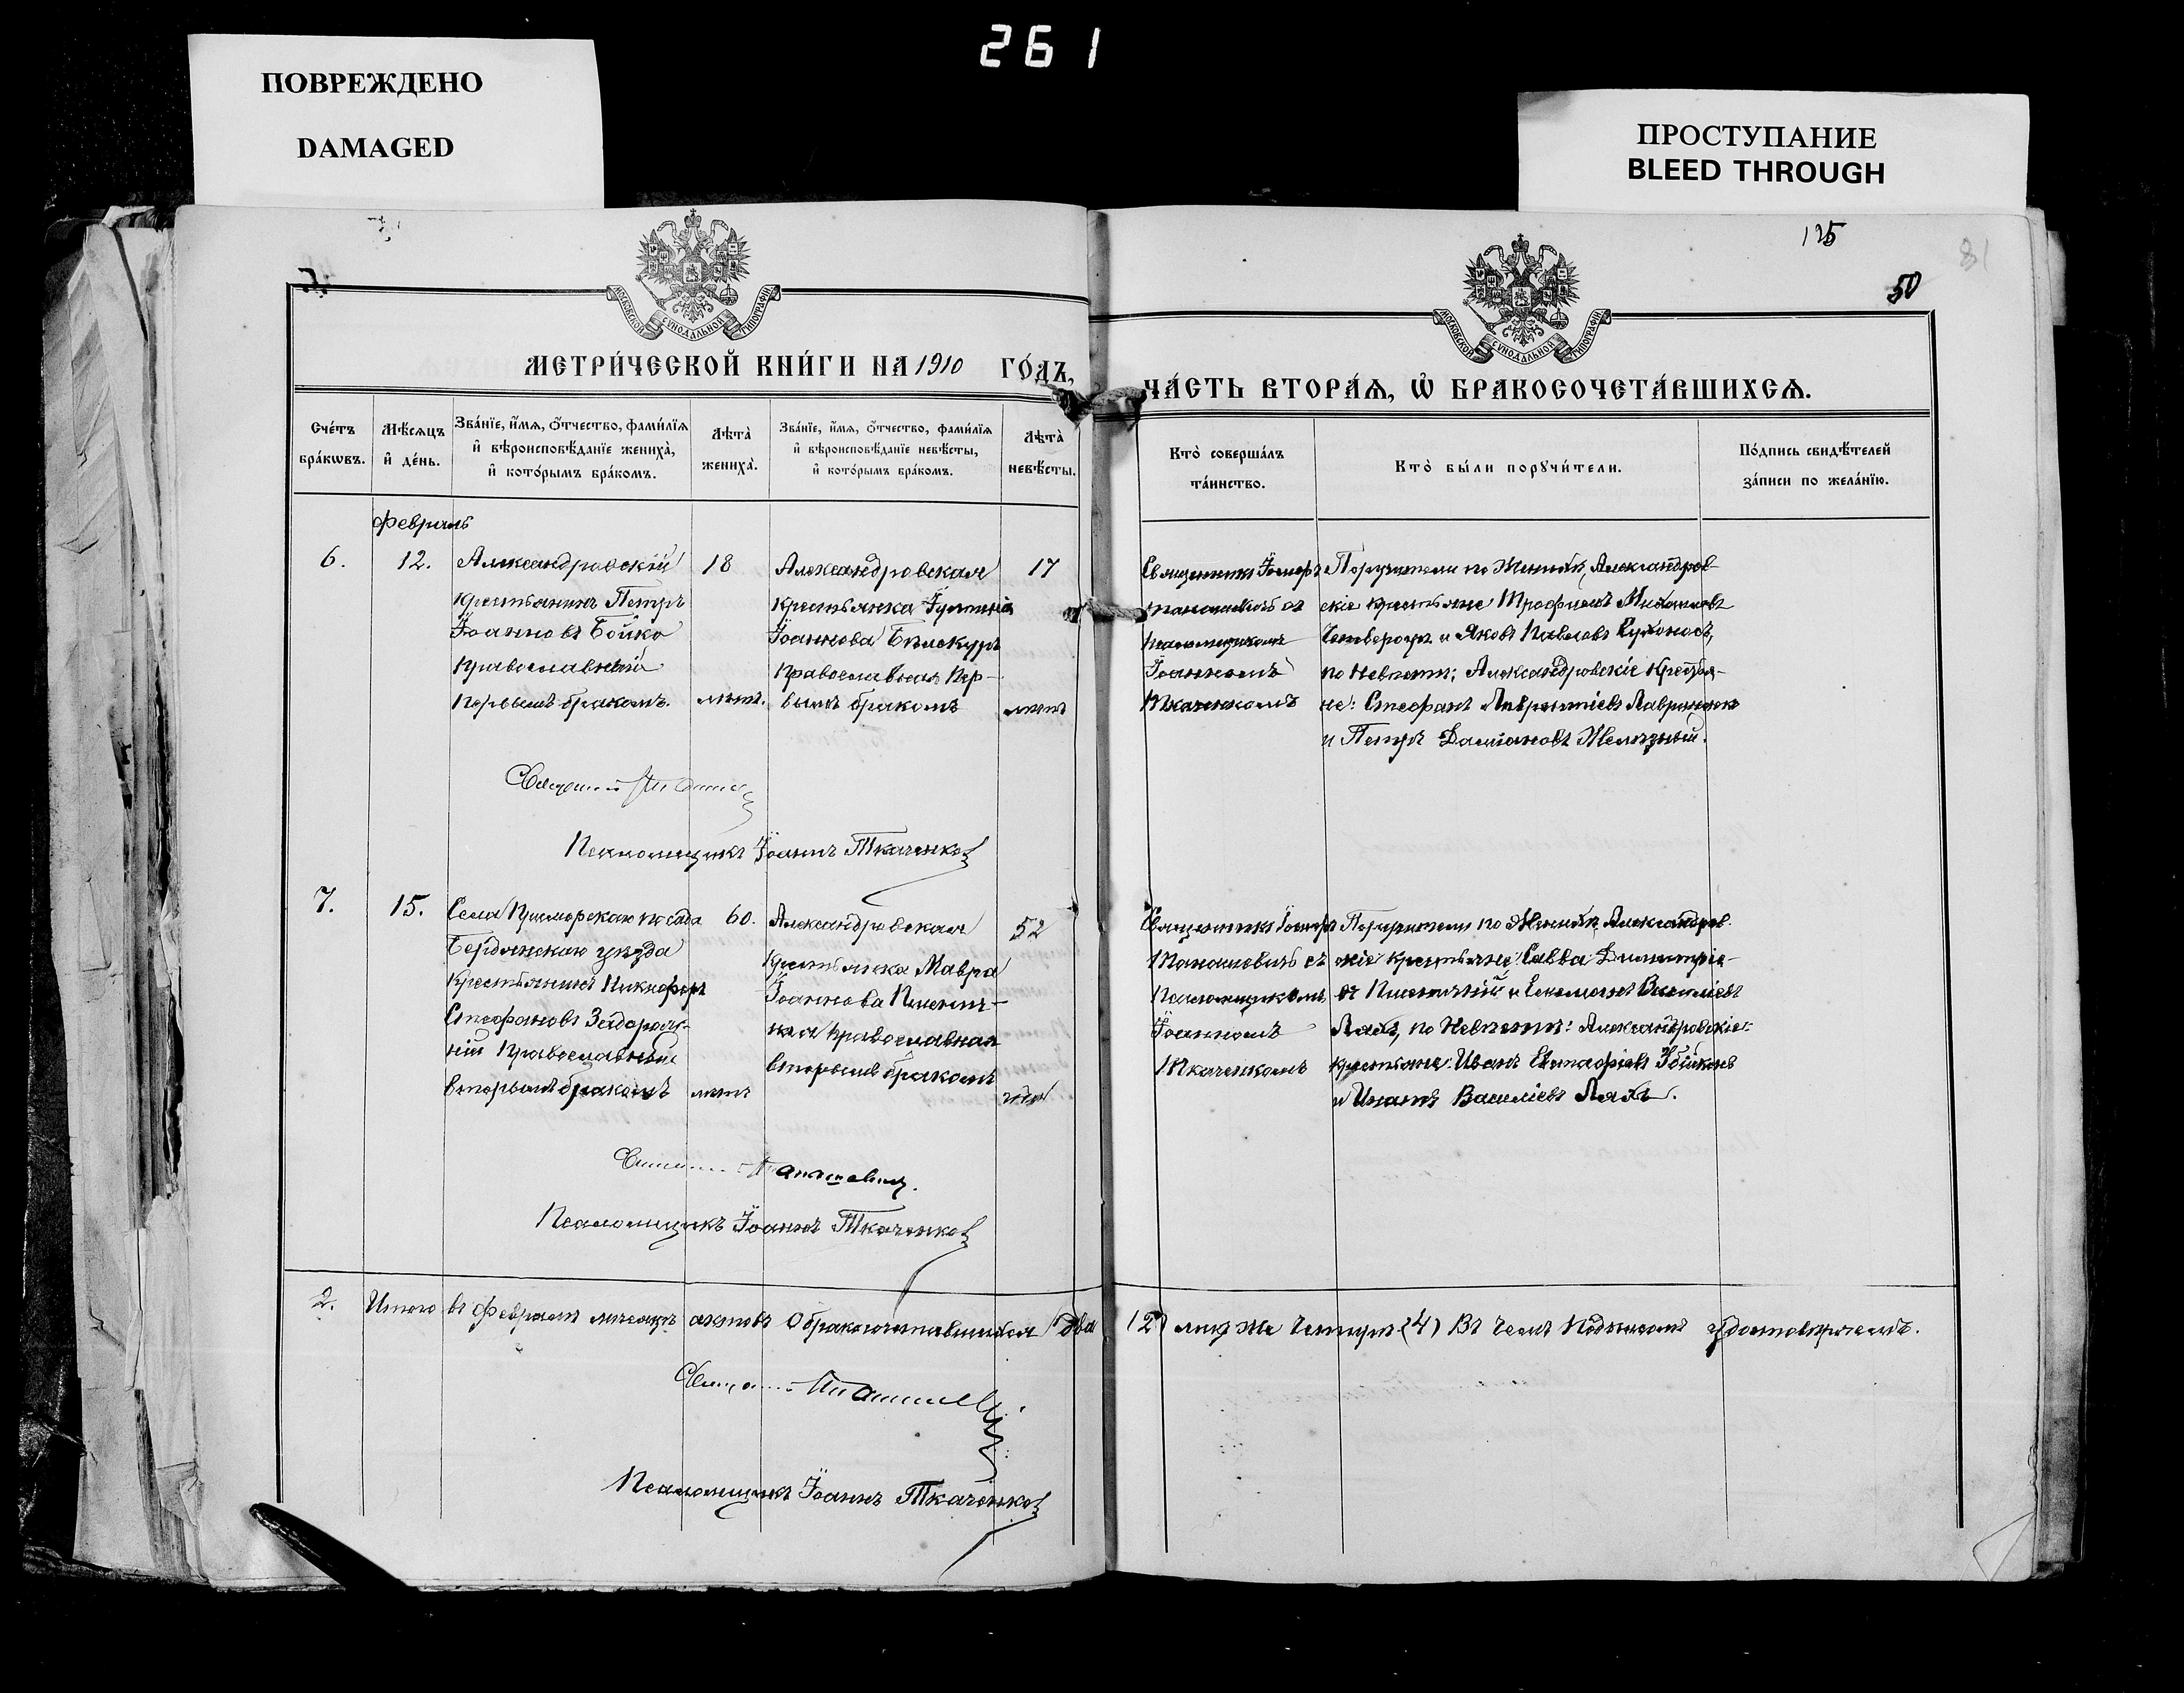 261
ПОВРЕЖДЕНО
DAMAGED
ПРОСТУПАНИЕ
BLEED THROUGH
125
81
50
МОСКОВСКОЙ СѴНОДАЛЬНОЙ ТИПОГРАФІИ
МОСКОВСКОЙ СѴНОДАЛЬНОЙ ТИПОГРАФІИ
МЕТРИ́ЧЕСКОЙ КНИ́ГИ НА 1910 ГО́ДЪ,
ЧА́СТЬ ВТОРА́Ѧ, Ѡ҆ БРАКОСОЧЕТА́ВШИХСѦ.
Сче́тъ бра́кѡвъ.
Мѣ́сѧцъ и҆ де́нь.
Зва́нїе, и҆́мѧ, ѻ҆́тчество, фами́лїѧ
и҆ вѣроисповѣ́данїе жениха̀,
и҆ кото́рымъ бра́комъ.
Лѣта̀ жениха̀.
Зва́нїе, и҆́мѧ, ѻ҆́тчество, фами́лїѧ
и҆ вѣроисповѣ́данїе невѣ́сты,
и҆ кото́рымъ бра́комъ.
Лѣта̀ невѣ́сты.
Кто̀ соверша́лъ та́инство.
Кто̀ бы́ли порꙋчи́тели.
По́дпись свидѣ́телей за́писи по жела́нїю.
Февраль
6.
12.
Александровскій
крестьянинъ Петръ
Іоанновъ Бойко
Православный
Первымъ бракомъ.
18
лѣтъ.
Александровская
крестьянка Іулианія
Іоаннова Бѣлокуръ
Православная Пер-
вымъ бракомъ
17
лѣтъ
Священникъ Іосифъ
Танашевичъ съ
псаломщикомъ
Іоанномъ
Ткаченкомъ
Поручители по Женихѣ, Александров-
скіе крестьяне Трофимъ Михаиловъ
Четверочъ и Яковъ Павловъ Сухоносъ,
по Невѣстѣ; Александровскіе Крестья-
не: Стефанъ Лаврентіевъ Лавриненко
и Петръ Даміановъ Желѣзный.
Псаломщикъ Іоаннъ Ткаченко
7.
15.
Села Приморскаго посада
Бердянскаго уѣзда
Крестьянинъ Никифоръ
Стефановъ Задорож-
ній Православный
вторымъ бракомъ
60.
лѣтъ
Александровская
Крестьянка Мавра
Іоаннова Пшенич-
ная Православная
вторымъ бракомъ
52
года
Священникъ Іосифъ
Танашевичъ съ
Псаломщикомъ
Іоанномъ
Ткаченкомъ
Поручители по Женихѣ Александров-
скіе крестьяне Савва Димитріе-
въ Пшеничный и Василіевъ
Ляхъ, по Невѣстѣ: Александровскіе
крестьяне: Иванъ Евстафіевъ
и Игнатъ Василіевъ Ляхъ.
Танашевичъ.
Псаломщикъ Іоаннъ Ткаченко
2. Итого въ Февралѣ мѣсяцѣ актовъ о бракосочетавшихся два (2) лицъ же четыре (4) Въ чемъ Подписомъ удостовѣряемъ.
Псаломщикъ Іоаннъ Ткаченко